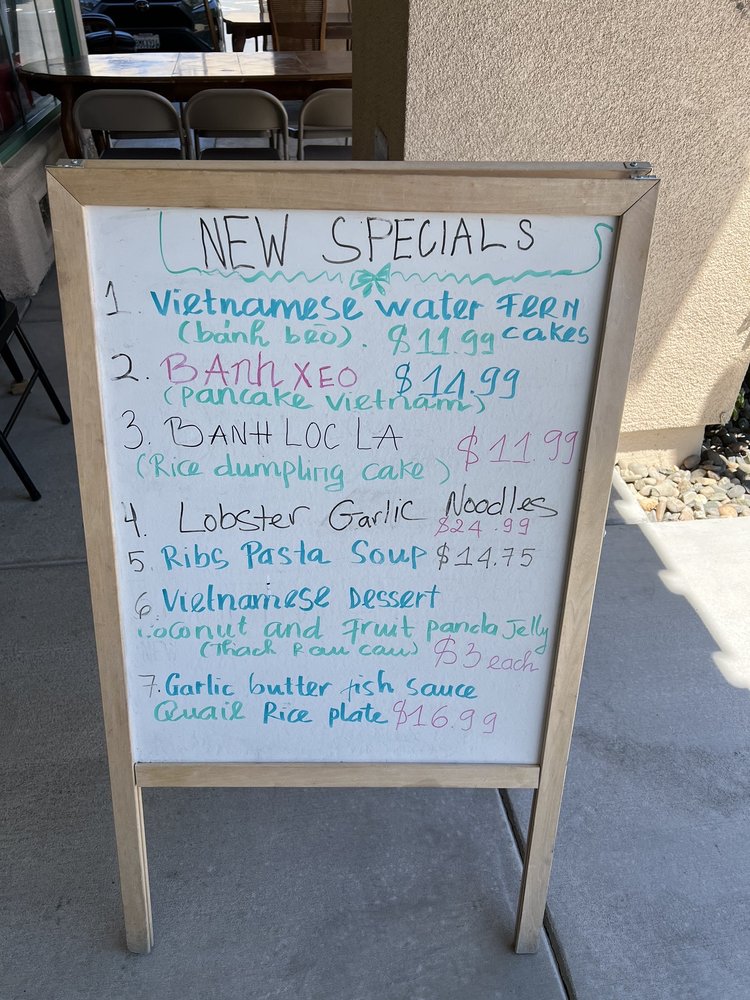 NEW SPECIALS
1 Vietnamese water FERN
(bánh bèo). $11.99 cakes
2. BANh XEO $14.99
(Pancake Vietnam)
3. BANH LOC LA $11.99
(Rice dumpling cake)
4. Lobster Garlic Noodles
$24.99
5. Ribs Pasta Soup $14.75
6. Vietnamese Dessert
Coconut and Fruit panda Jelly
(Thach Rau cau) $3 each
7. Garlic butter fish sauce
Quail Rice plate $16.99